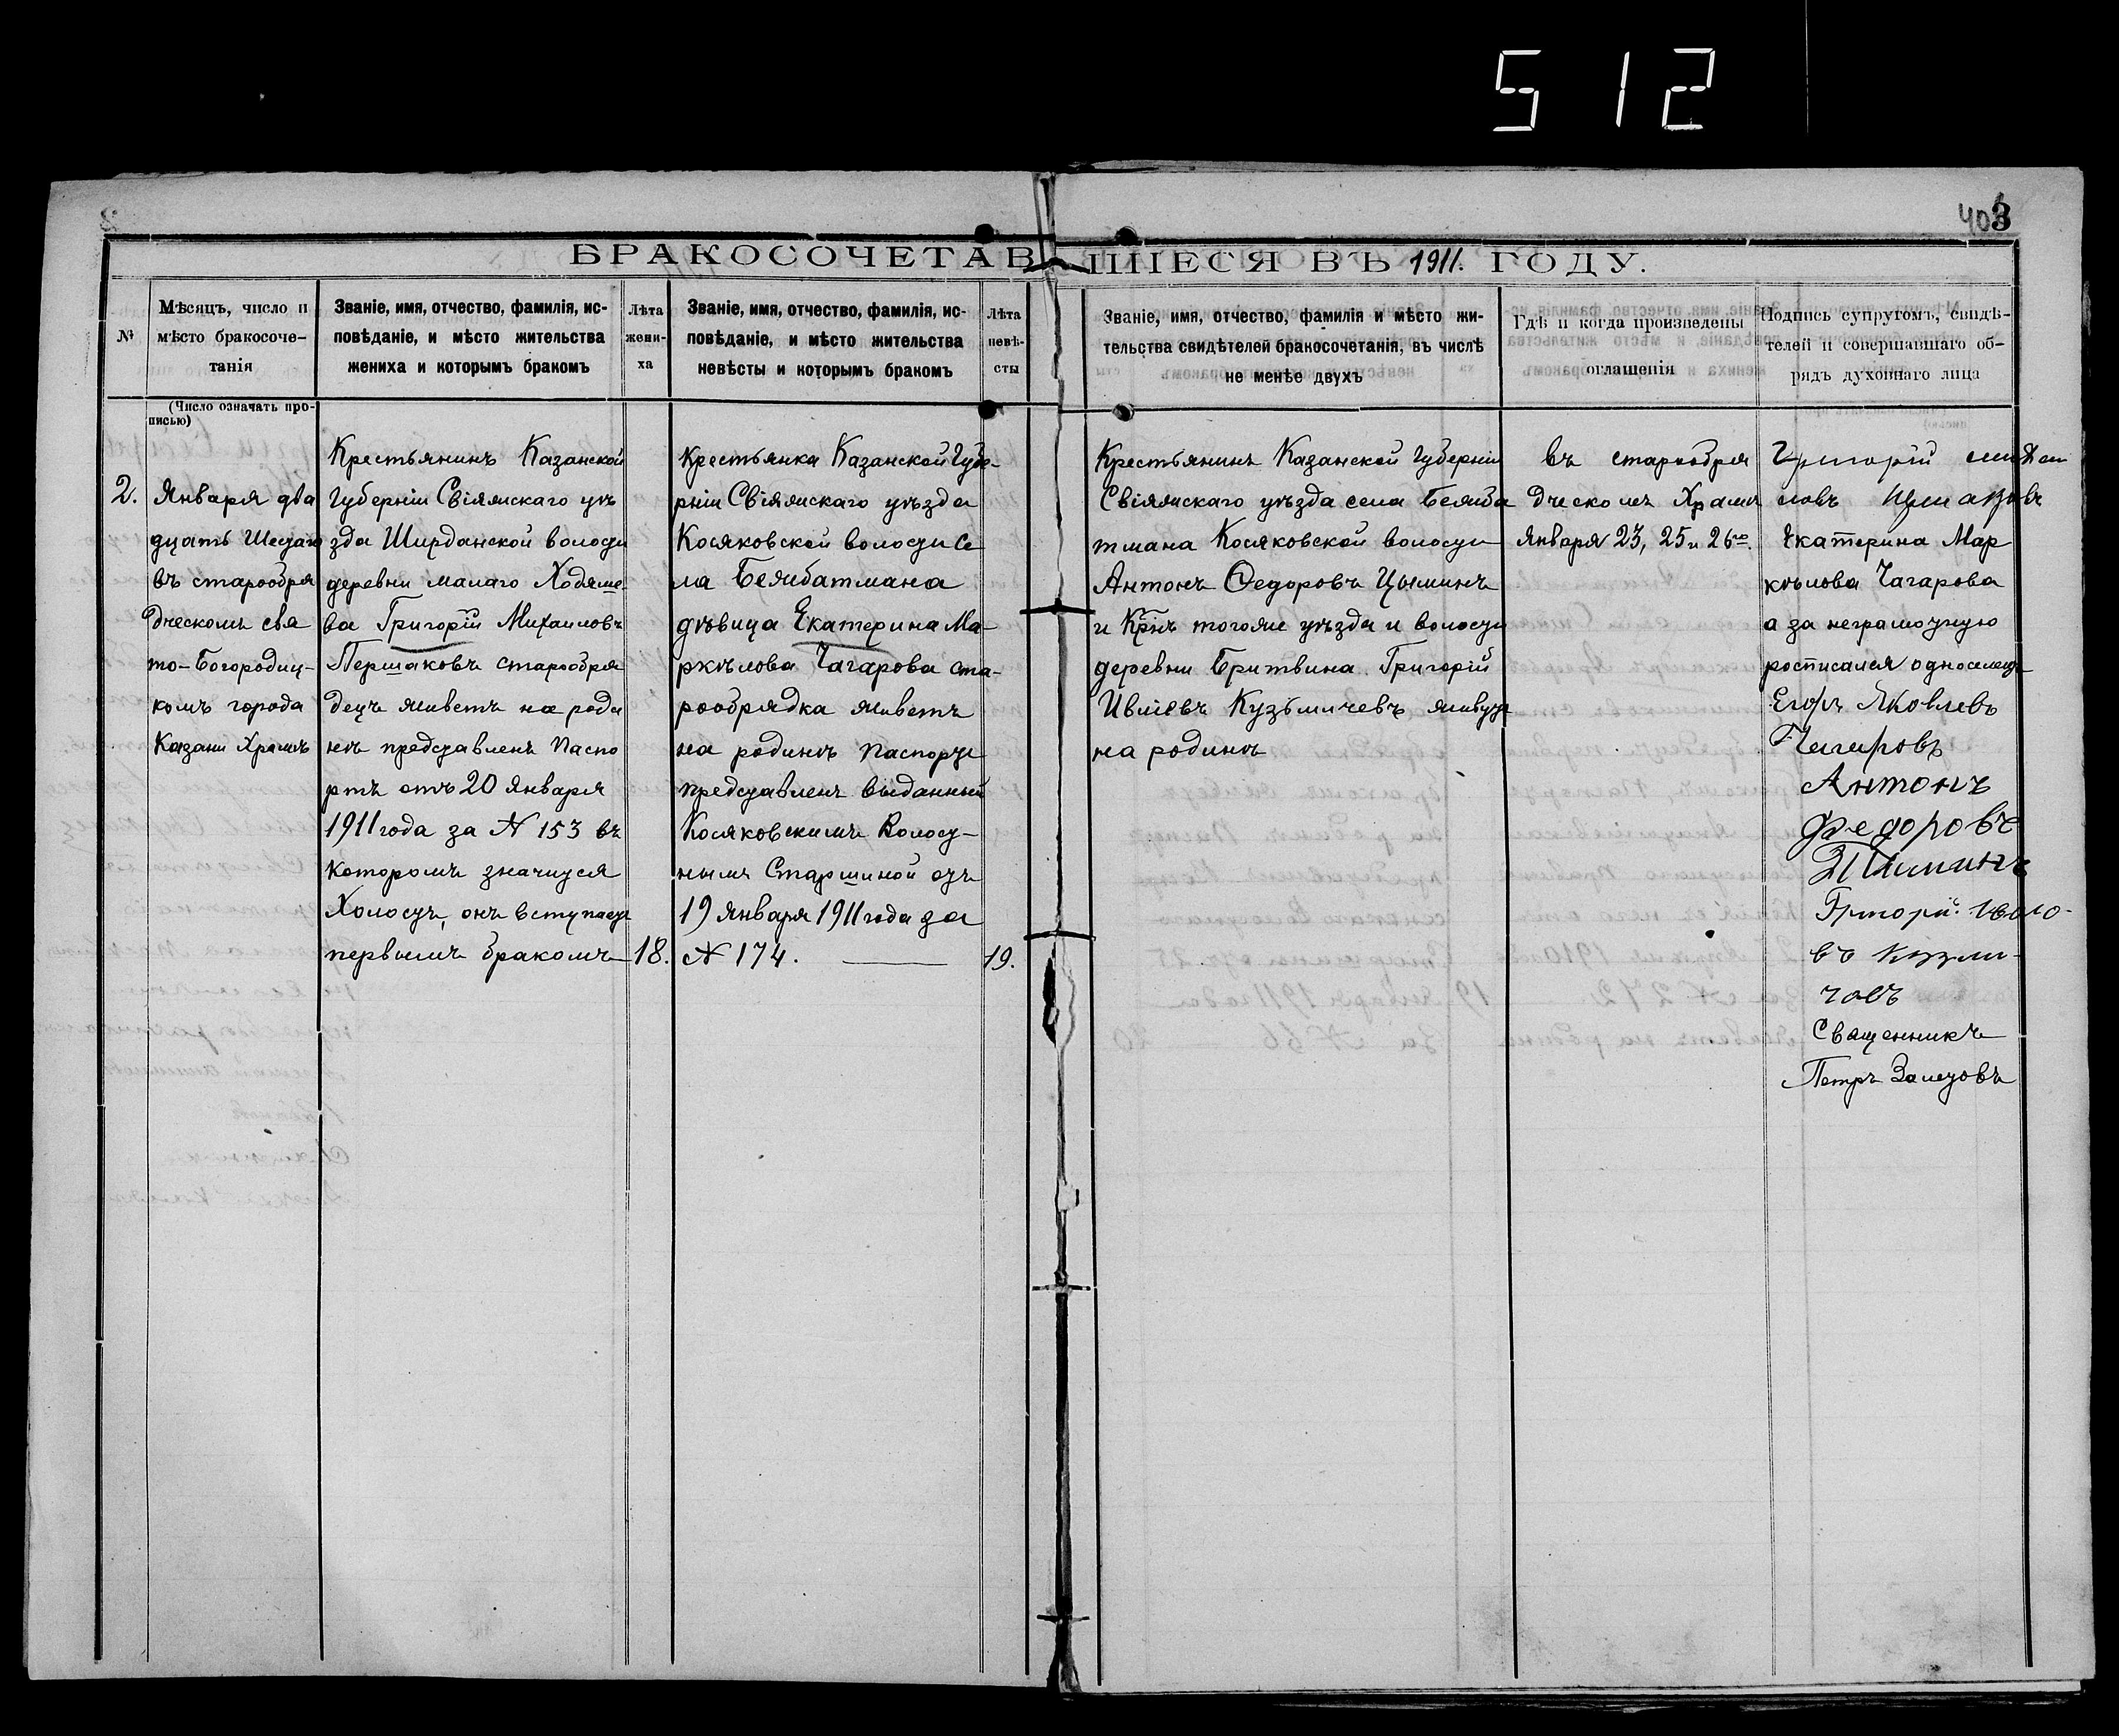 512
403
3
БРАКОСОЧЕТАВШІЕСЯ ВЪ 1911. ГОДУ.
№
Мѣсяцъ, число и
мѣсто бракосоче-
танія
Званіе, имя, отчество, фамилія, ис-
повѣданіе, и мѣсто жительства
жениха и которымъ бракомъ
Лѣта
жени-
ха
Званіе, имя, отчество, фамилія, ис-
повѣданіе, и мѣсто жительства
невѣсты и которымъ бракомъ
Лѣта
невѣ-
сты
Званіе, имя, отчество, фамилія и мѣсто жи-
тельства свидѣтелей бракосочетанія, въ числѣ
не менѣе двухъ
Гдѣ и когда произведены
оглашенія
Подпись супруговъ, свидѣ-
телей и совершавшаго об-
рядъ духовнаго лица
(Число означать про-
писью)
2.
Января два
дцать Шестаго
въ старообря
дческомъ свя
то-Богородиц-
комъ города
Казани Храмѣ
Крестьянинъ Казанской
Губерніи Свіяжскаго уѣ
зда Ширданской волости
деревни малаго Ходяше-
ва Григорій Михаиловъ
Першаковъ старообря
децъ живетъ на роди
нѣ представленъ Паспо
ртъ отъ 20 Января
1911 года за № 153 въ
которомъ значится
Холостъ, онъ вступаетъ
первымъ бракомъ
18.
Крестьянка Казанской Губе-
рніи Свіяжскаго уѣзда
Косяковской волости Се
ла Бежбатмана
дѣвица Екатерина Ма-
ркѣлова Чагарова ста-
рообрядка живетъ
на родинѣ Паспортъ
представленъ выданный
Косяковскимъ Волост-
нымъ Старшиной отъ
19 Января 1911 года за
№ 174.
19.
Крестьянинъ Казанской Губерніи
Свіяжскаго уѣзда села Бежба
тмана Косяковской волости
Антонъ Ѳедоровъ Цыминъ
и Крн҃ъ тогоже уѣзда и волости
деревни Бритвина Григорій
Ивліевъ Кузьмичевъ живутъ
на родинѣ
въ старообря
дческомъ Храмѣ
Января 23, 25 и 26го.
Григорій
Екатерина Мар
кѣлова Чагарова
а за неграмотную
росписался односелецъ
Егоръ Яковлевъ
Чагаровъ
Антонъ
Федоровъ
Григорій
въ
човъ
Священникъ
Петръ Залетовъ